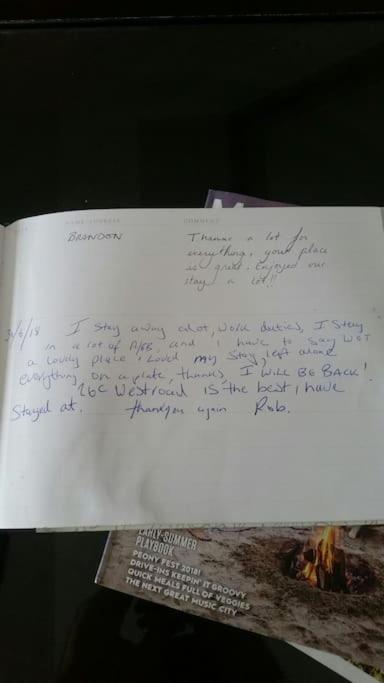 NAME/ADDRESS COMMENT
BRANDON
Thanks a lot for
everything, your place
is great. Enjoyed our
stay a lot!!
I Stay away alot, work duties, I Stay
in a lot of A/BB, and I have to say WOT
a lovely place, I Loved my Stay, left alone
everything on a plate, thanks, I WILL BE BACK!
26c Westroad IS the best I have
Stayed at. thankyou again Rob.
EARLY-SUMMER
PLAYBOOK
PEONY FEST 2018!
DRIVE-INS KEEPIN' IT GROOVY
QUICK MEALS FULL OF VEGGIES
THE NEXT GREAT MUSIC CITY